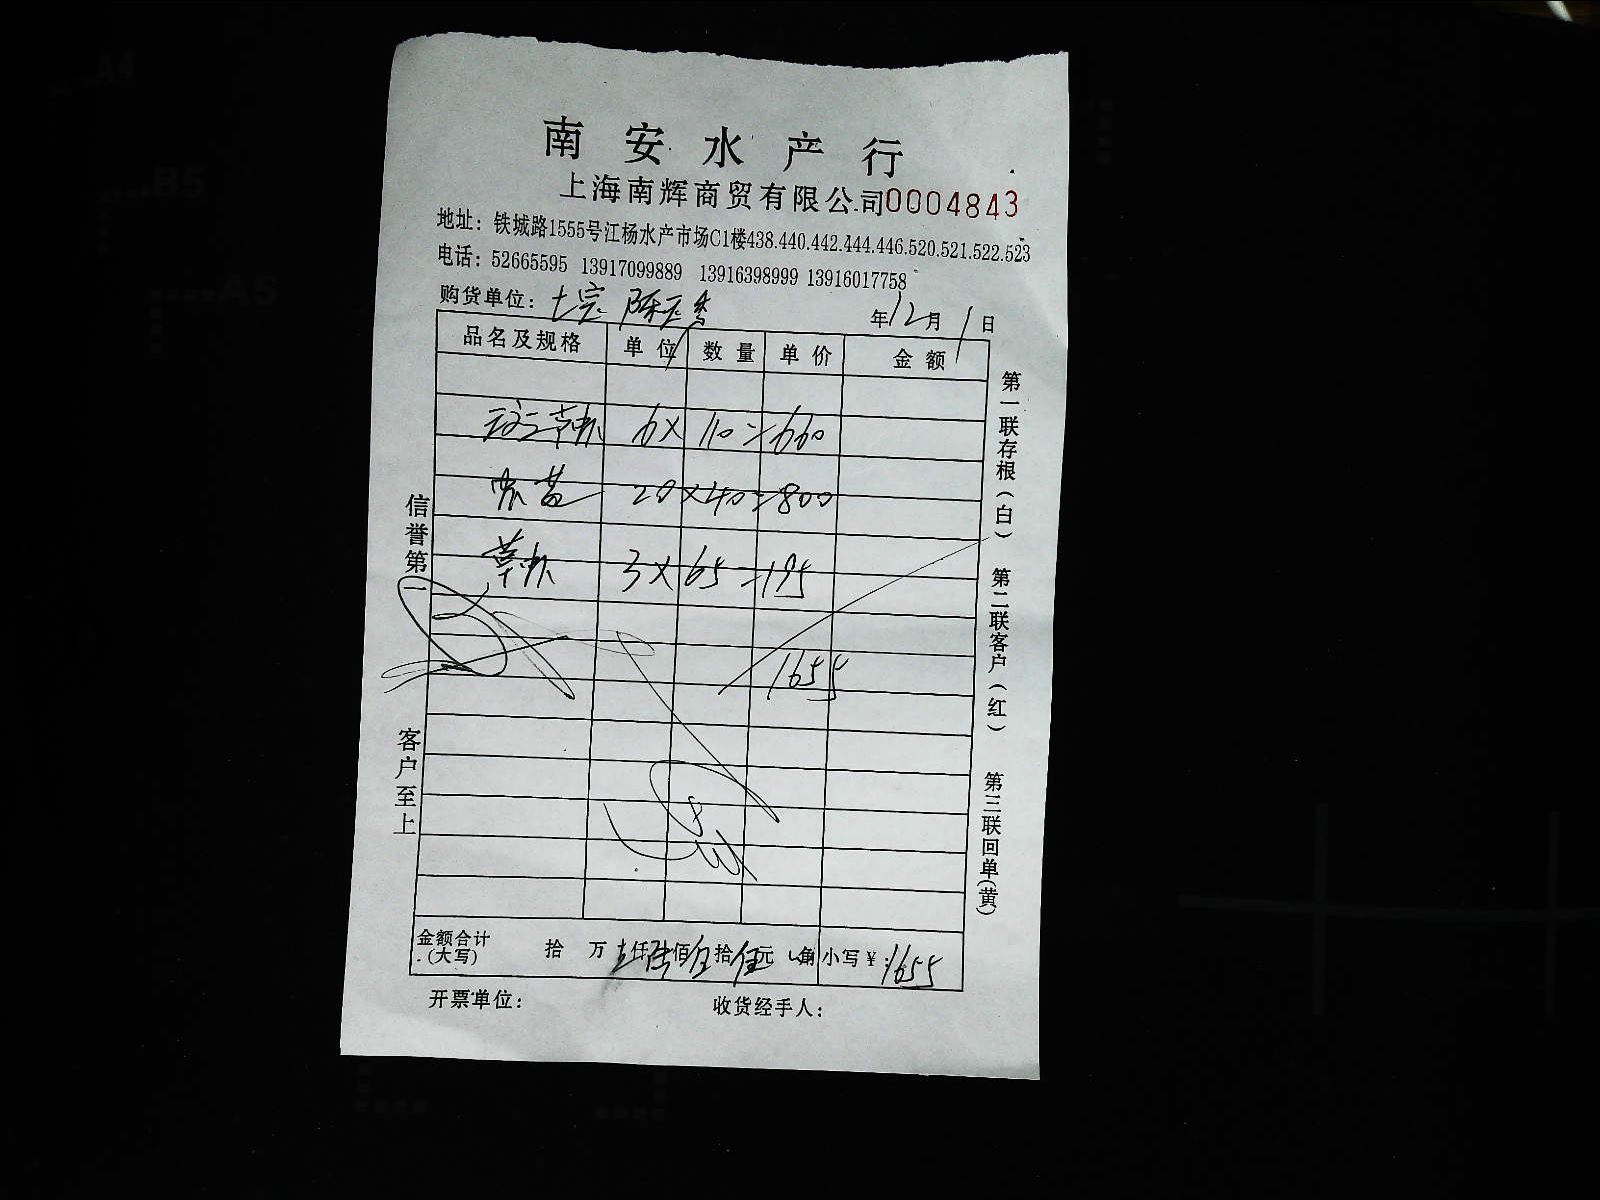 南安水产行
上海南辉商贸有限公司0004843
地址：铁城路1555号江杨水产市场C1楼438.440.442.444.446.520.521.522.523
电话：52665595 13917099889 13916398999 13916017758
购货单位： 年12月1日
品名及规格 单位 数量 单价 金额
6× 110=660
20×40=800
3×65=195
1655
金额合计 拾 万 仟 佰 拾 元 角 小写￥：1655
（大写）
开票单位： 收货经手人：
信誉第一
客户至上
第一联存根（白）
第二联客户（红）
第三联回单（黄）